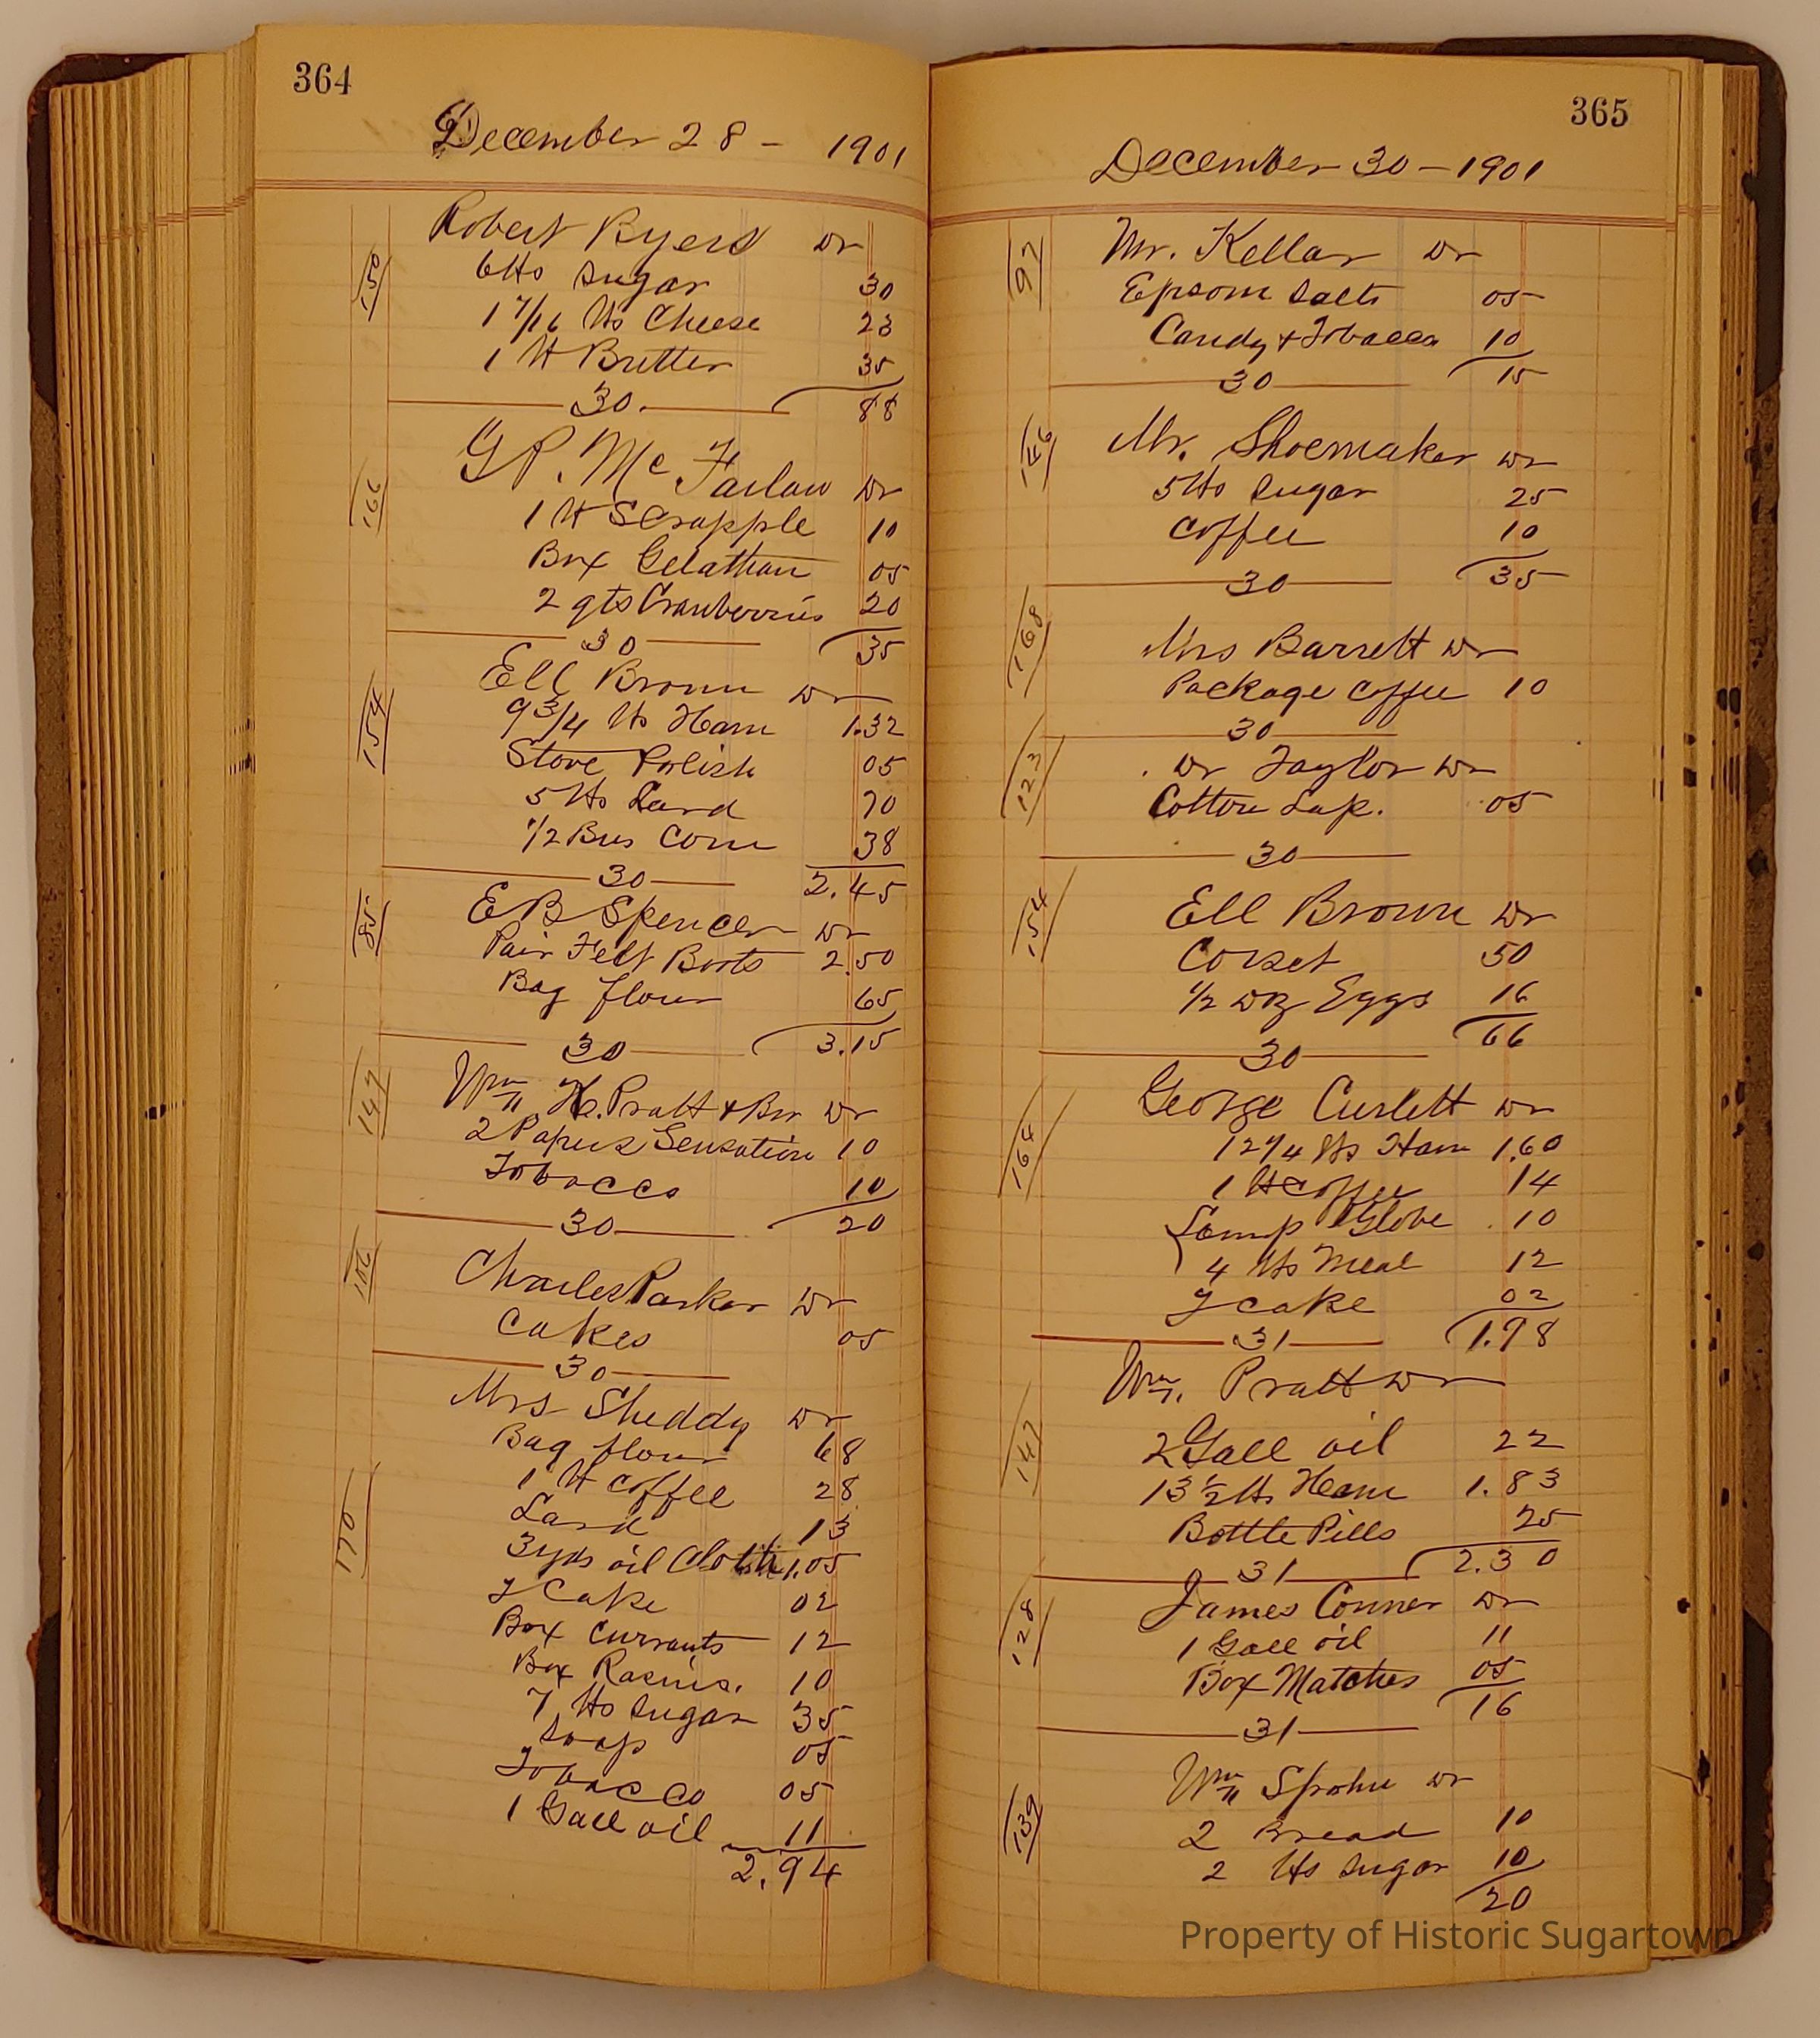 364
December 28 - 1901
150
Robert Byers Dr
6 lbs Sugar 30
1 7/16 lbs Cheese 23
1 lb Butter 35
30. 88
166
G P. Mc Farlan Dr
1 lb Scrapple 10
Box Gelathan 05
2 qts Cranberries 20
30 35
154
Ell Brown Dr
9 3/4 lbs Ham 1.32
Stove Polish 05
5 lbs Lard 70
1/2 Bus Corn 38
30 2.45
85
E B Spencer Dr
Pair Felt Boots 2.50
Bag flour 65
30 3.15
147
Wm H. Pratt + Bro Dr
2 Papers Sensation 10
Tobacco 10
30 20
Charles Parker Dr
Cakes 05
30
170
Mrs Sheddy Dr
Bag flour 68
1 lb Coffee 28
Lard 13
3 yds oil Cloth 1.05
Y Cake 02
Box Currants 12
Box Rasins. 10
7 lbs Sugar 35
Soap 05
Tobacco 05
1 Gall oil 11
2.94
365
December 30 - 1901
97
Mr. Kellar Dr
Epsom Salts 05
Candy + Tobacco 10
30 15
146
Mr. Shoemaker Dr
5 lbs Sugar 25
Coffee 10
30 35
168
Mrs Barrett Dr
Package Coffee 10
30
123
Dr Taylor Dr
Cotton Lap. 05
30
154
Ell Brown Dr
Corset 50
1/2 Doz Eggs 16
30 66
164
George Curlett Dr
12 1/4 lbs Ham 1.60
1 lb Coffee 14
Lamp Globe 10
4 lbs Meal 12
Y Cake 02
31 1.98
147
Wm. Pratt Dr
2 Gall oil 22
13 1/2 lbs Ham 1.83
Bottle Pills 25
31 2.30
128
James Conner Dr
1 Gall oil 11
Box Matches 05
31 16
139
Wm Sprohn Dr
2 Bread 10
2 lbs Sugar 10
20
Property of Historic Sugartown